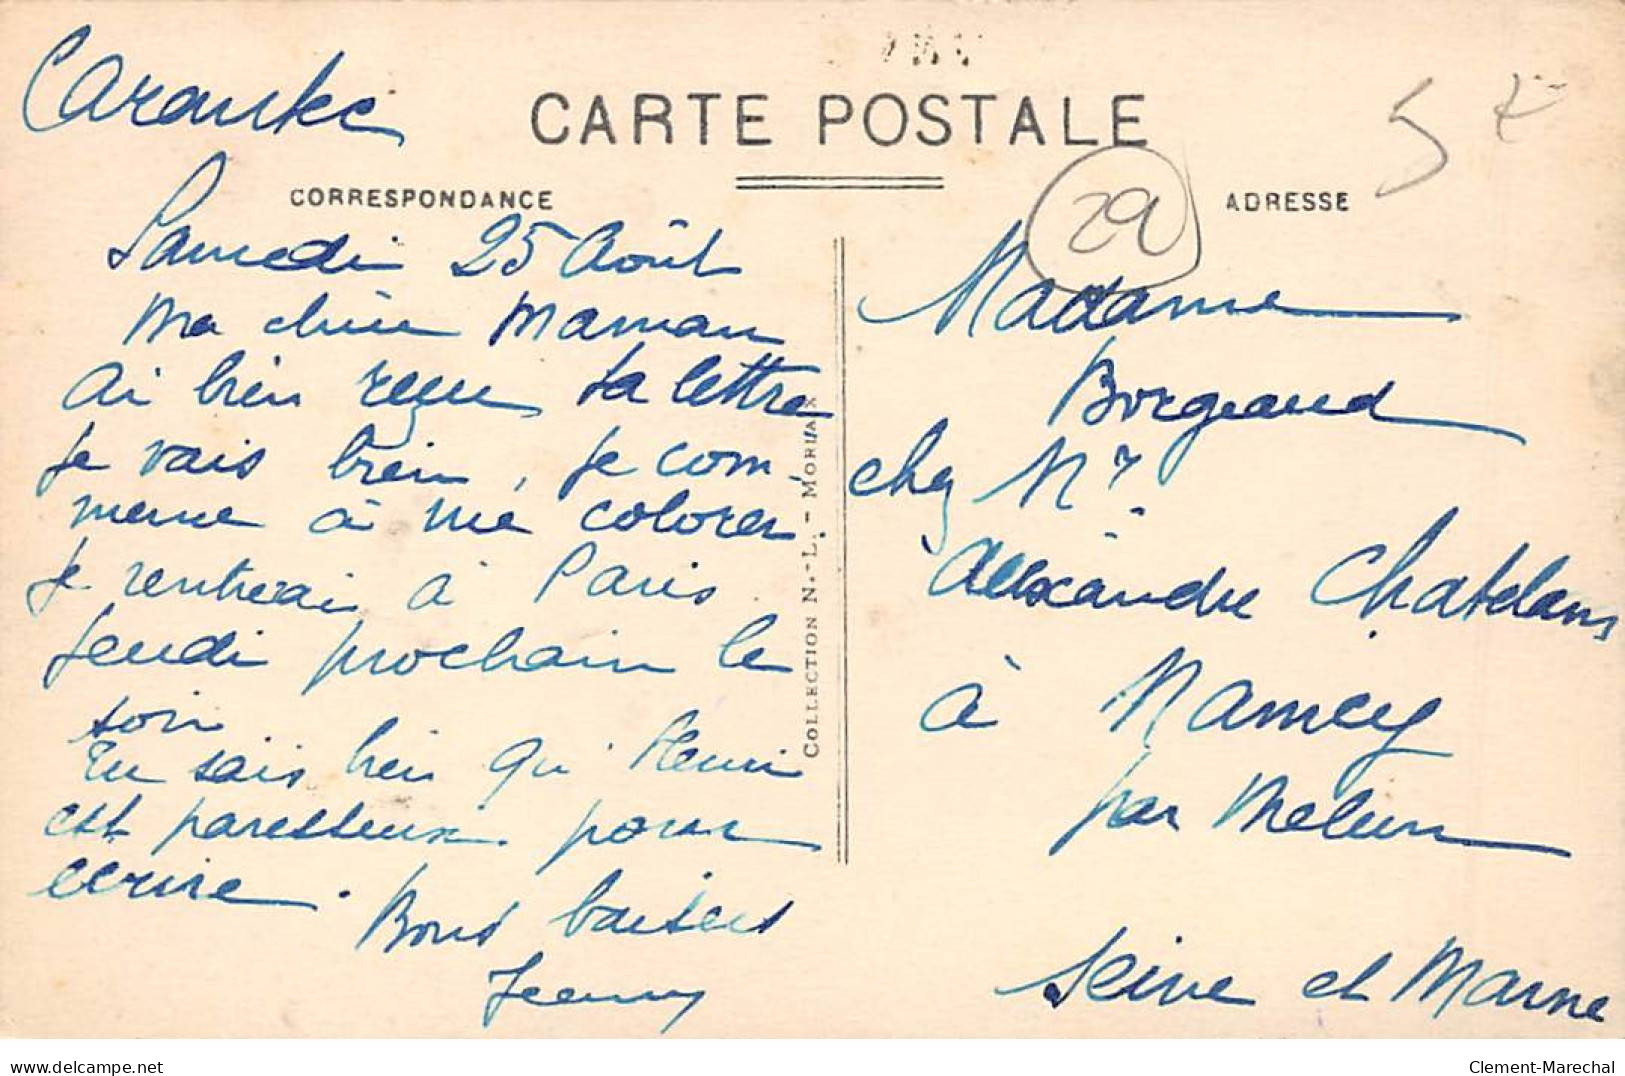 Carantec
CARTE POSTALE
5 €
29
CORRESPONDANCE
ADRESSE
Samedi 25 Août
Ma chère Maman
ai bien reçu ta lettre
je vais bien, je com
mence à me colorer.
Je rentrerai à Paris
Jeudi prochain le
soir
Tu sais bien qu'Henri
est paresseux pour
écrire.
Bons baisers
Jenny
COLLECTION N.-L. - MORLAIX
Madame
Borgeaud
chez Mr
Alexandre Chatelans
à Nancy
par Melun
Seine et Marne
delcampe.net
Clement-Marechal